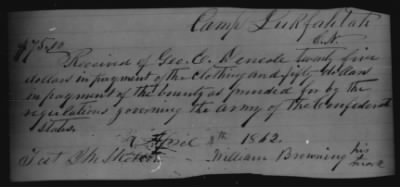 Camp Lukfahtah
C.N.
$75.00
Received of Geo. C. twenty five
dollars in payment of the clothing and fifty dollars
in payment of the bounty as provided for by the
regulations governing the army of the Confederate
States.
April 8th 1862.
Test William Browning his
mark